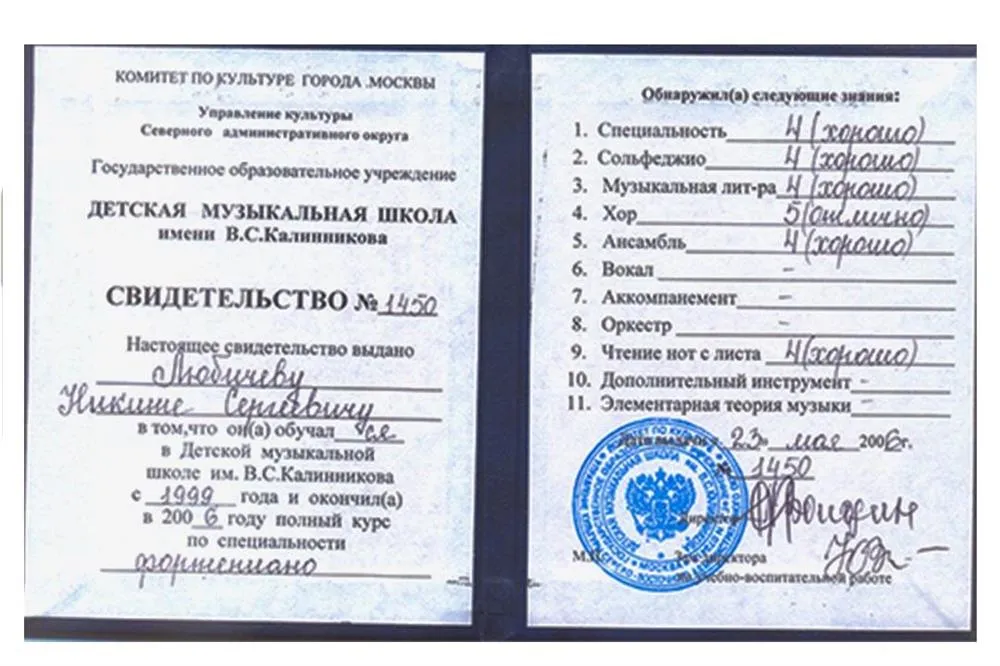 КОМИТЕТ ПО КУЛЬТУРЕ ГОРОДА .МОСКВЫ
Управление культуры
Северного административного округа
Государственное образовательное учреждение
ДЕТСКАЯ МУЗЫКАЛЬНАЯ ШКОЛА
имени В.С.Калинникова
СВИДЕТЕЛЬСТВО № 1450
Настоящее свидетельство выдано
Любичеву
Никите Сергеевичу
в том,что он(а) обучал ся
в Детской музыкальной
школе им. В.С.Калинникова
с 1999 года и окончил(а)
в 2006 году полный курс
по специальности
фортепиано
Обнаружил(а) следующие знания:
1. Специальность 4 (хорошо)
2. Сольфеджио 4 (хорошо)
3. Музыкальная лит-ра 4 (хорошо)
4. Хор 5 (отлично)
5. Ансамбль 4 (хорошо)
6. Вокал -
7. Аккомпанемент -
8. Оркестр -
9. Чтение нот с листа 4 (хорошо)
10. Дополнительный инструмент -
11. Элементарная теория музыки -
Дата выдачи « 23 » мая 2006г.
№ 1450
Директор
М.П. Зам.директора
по учебно-воспитательной работе